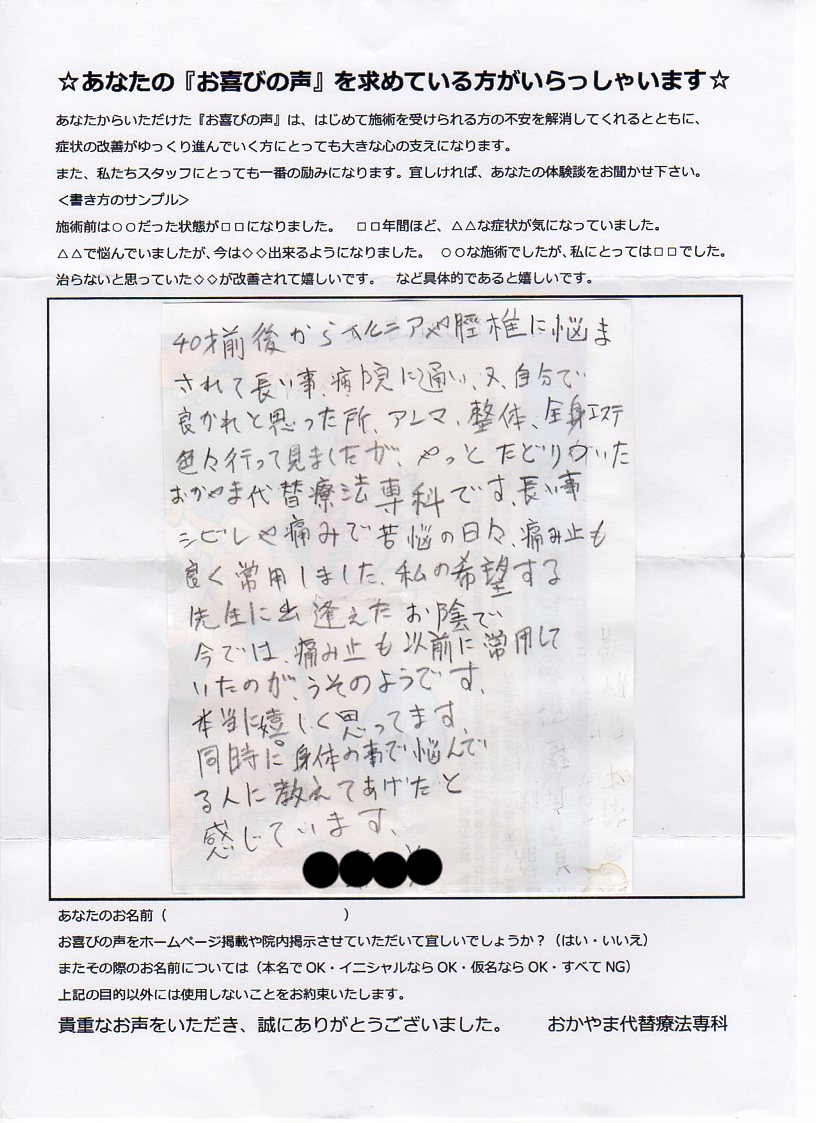 ☆あなたの『お喜びの声』を求めている方がいらっしゃいます☆
あなたからいただけた『お喜びの声』は、はじめて施術を受けられる方の不安を解消してくれるとともに、
症状の改善がゆっくり進んでいく方にとっても大きな心の支えになります。
また、私たちスタッフにとっても一番の励みになります。宜しければ、あなたの体験談をお聞かせ下さい。
＜書き方のサンプル＞
施術前は○○だった状態が□□になりました。　□□年間ほど、△△な症状が気になっていました。
△△で悩んでいましたが、今は◇◇出来るようになりました。　○○な施術でしたが、私にとっては□□でした。
治らないと思っていた◇◇が改善されて嬉しいです。　など具体的であると嬉しいです。
40才前後からヘルニアや脛椎に悩ま
されて長い事、病院に通い、又、自分で
良かれと思った所、アレマ、整体、全身エステ
色々行って見ましたが、やっとたどりついた
おかやま代替療法専科です、長い事
シビレや痛みで苦悩の日々、痛み止も
良く常用しました、私の希望する
先生に出逢えたお陰で
今では、痛み止も以前に常用して
いたのが、うそのようです、
本当に嬉しく思ってます。
同時に身体の事で悩んで
る人に教えてあげたと
感じています、
あなたのお名前（　　　　　　　　　　　　）
お喜びの声をホームページ掲載や院内掲示させていただいて宜しいでしょうか？（はい・いいえ）
またその際のお名前については（本名でOK・イニシャルならOK・仮名ならOK・すべてNG）
上記の目的以外には使用しないことをお約束いたします。
貴重なお声をいただき、誠にありがとうございました。　　おかやま代替療法専科